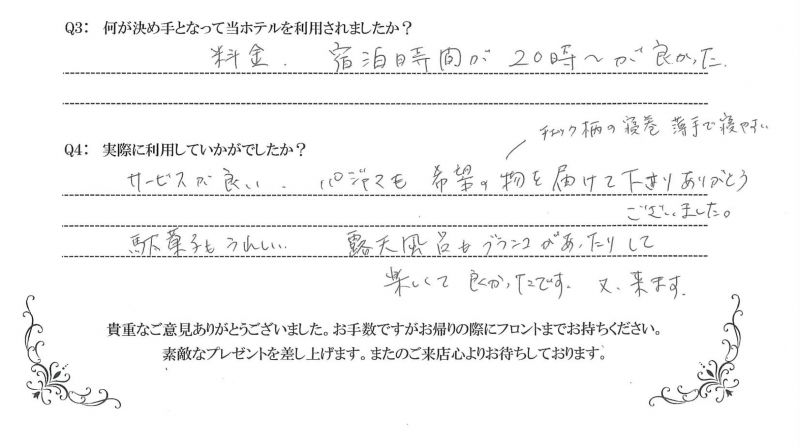 Q3: 何が決め手となって当ホテルを利用されましたか？
料金． 宿泊時間が 20時～が良かった．
Q4: 実際に利用していかがでしたか？
チェック柄の寝巻 薄手で寝やすい
サービスが良い． パジャマも 希望の物を届けて下さりありがとう
ございました。
駄菓子もうれしい． 露天風呂もブランコがあったりして
楽しくて良かったです． 又、来ます．
貴重なご意見ありがとうございました。お手数ですがお帰りの際にフロントまでお持ちください。
素敵なプレゼントを差し上げます。またのご来店心よりお待ちしております。